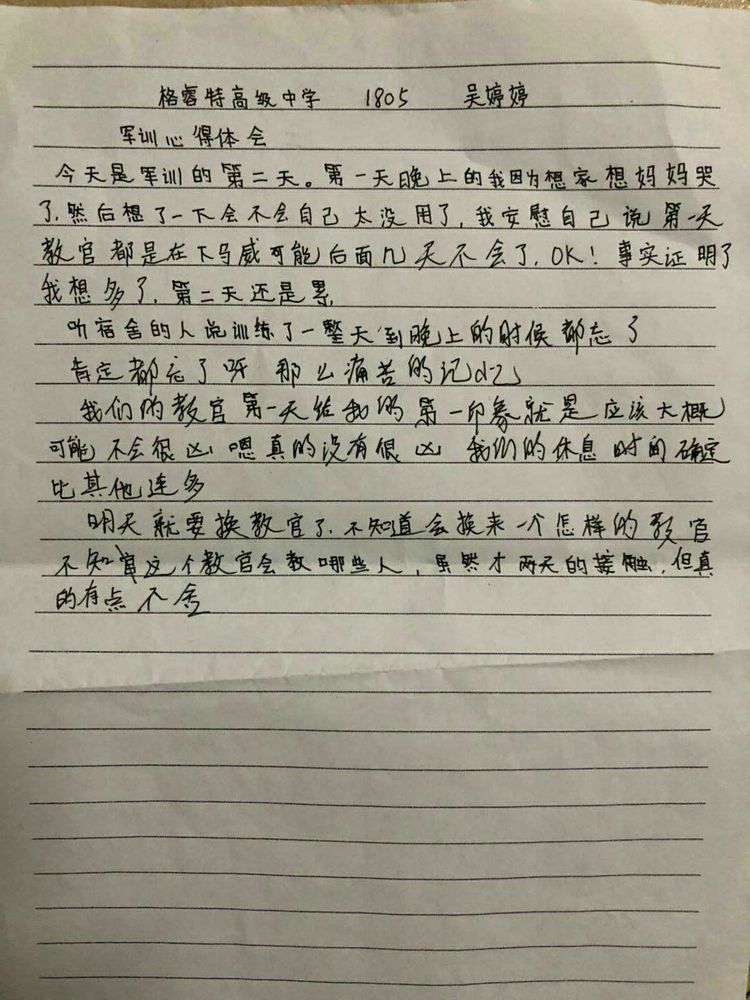 格睿特高级中学 1805 吴婷婷
军训心得体会
今天是军训的第二天。第一天晚上的我因为想家想妈妈哭
了,然后想了一下会不会自己太没用了,我安慰自己说第一天
教官都是在下马威可能后面几天不会了,OK!事实证明了
我想多了,第二天还是累,
听宿舍的人说训练了一整天到晚上的时候都忘了
肯定都忘了呀 那么痛苦的记忆
我们的教官第一天给我的第一印象就是应该大概
可能不会很凶 嗯真的没有很凶 我们的休息时间确定
比其他连多
明天就要换教官了,不知道会换来一个怎样的教官
不知这个教官会教哪些人,虽然才两天的接触,但真
的有点不舍